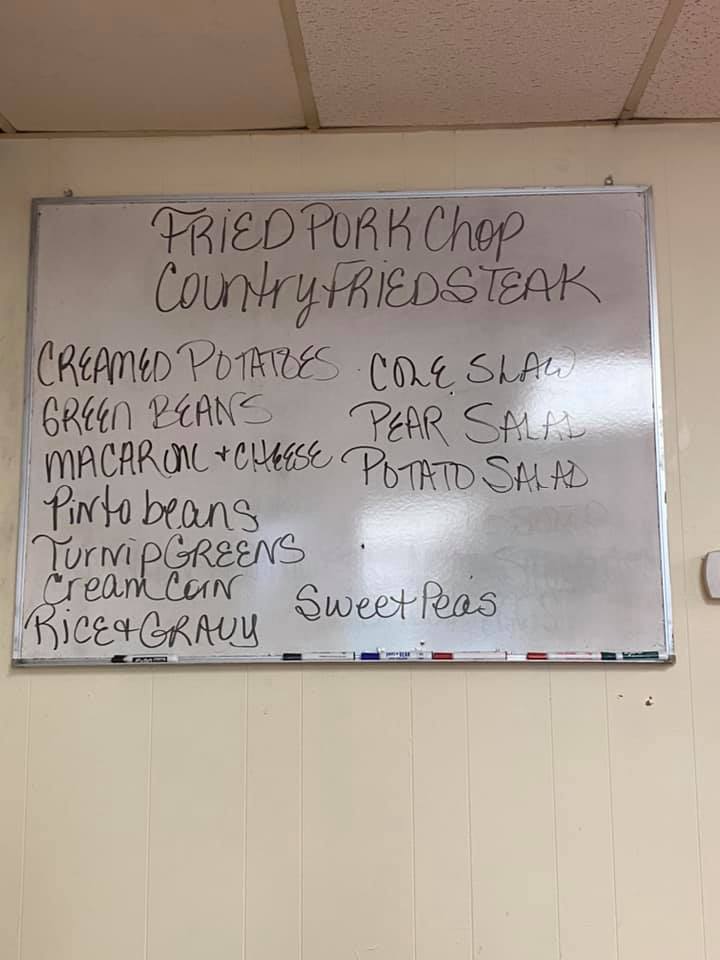 FRIED PORK Chop
Country FRIED STEAK
CREAMED POTATOES
GREEN BEANS
MACARONI + CHEESE
Pinto beans
TURNIP GREENS
Cream Corn
RICE + GRAVY
COLE SLAW
PEAR SALAD
POTATO SALAD
Sweet Peas